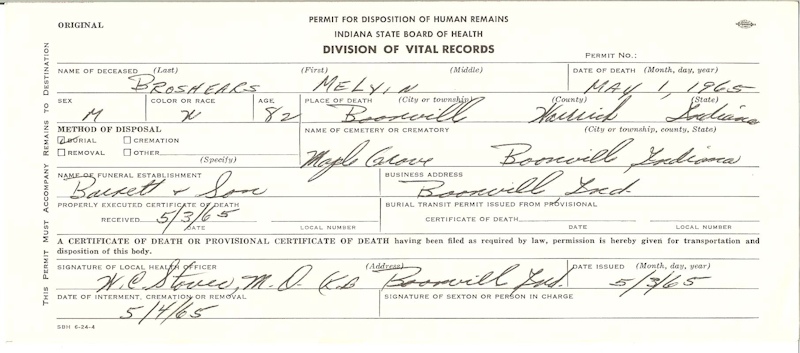 ORIGINAL
PERMIT FOR DISPOSITION OF HUMAN REMAINS
INDIANA STATE BOARD OF HEALTH
DIVISION OF VITAL RECORDS
PERMIT NO.:
THIS PERMIT MUST ACCOMPANY REMAINS TO DESTINATION
NAME OF DECEASED (Last) (First) (Middle) DATE OF DEATH (Month, day, year)
BROSHEARS MELVIN MAY 1, 1965
SEX COLOR OR RACE AGE PLACE OF DEATH (City or township) (County) (State)
M 82 Boonvill Warrick Indiana
METHOD OF DISPOSAL NAME OF CEMETERY OR CREMATORY (City or township, county, State)
BURIAL CREMATION
REMOVAL OTHER
(Specify)
Maple Grove Boonvill, Indiana
NAME OF FUNERAL ESTABLISHMENT BUSINESS ADDRESS
Barnett & Son Boonvill Ind.
PROPERLY EXECUTED CERTIFICATE OF DEATH BURIAL TRANSIT PERMIT ISSUED FROM PROVISIONAL
RECEIVED 5/3/65 CERTIFICATE OF DEATH
DATE LOCAL NUMBER DATE LOCAL NUMBER
A CERTIFICATE OF DEATH OR PROVISIONAL CERTIFICATE OF DEATH having been filed as required by law, permission is hereby given for transportation and
disposition of this body.
SIGNATURE OF LOCAL HEALTH OFFICER (Address) DATE ISSUED (Month, day, year)
W.C. Stover, M.D. Boonvill Ind. 5/3/65
DATE OF INTERMENT, CREMATION OR REMOVAL SIGNATURE OF SEXTON OR PERSON IN CHARGE
5/4/65
SBH 6-24-4